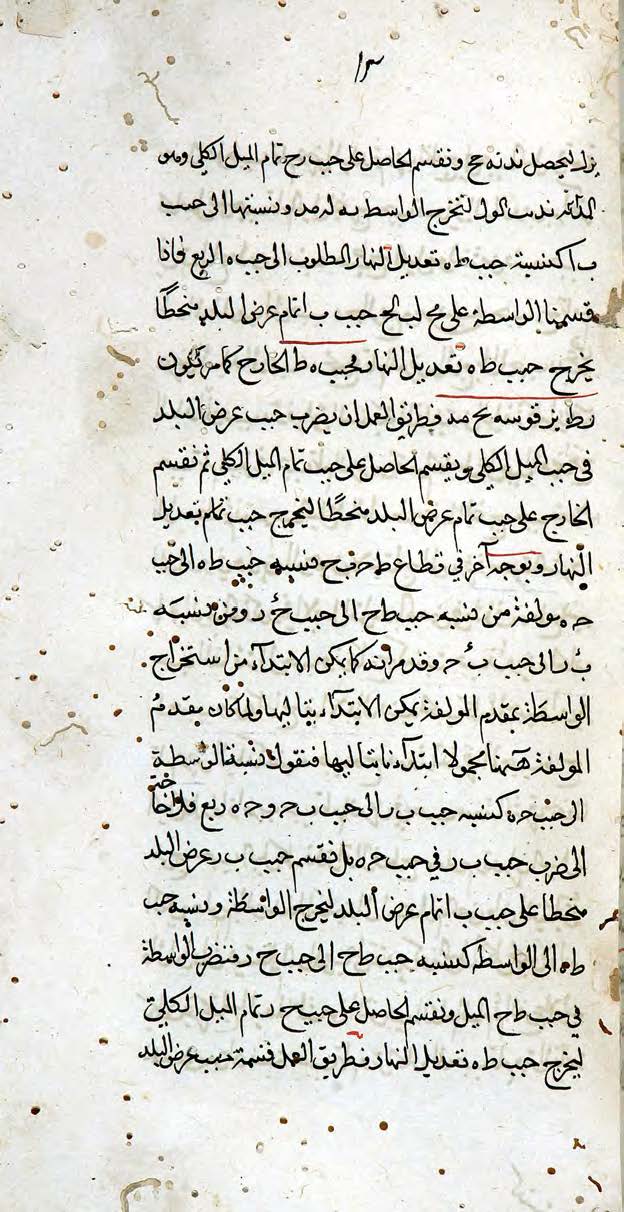 ١٣
ليحصل ونقسم الحاصل على جيب رح تمام الميل الكلي وهو
لتخرج الواسطة ونسبتها الى جيب
ب ا كنسبة جيب ط ه تعديل النهار المطلوب الى جيب ه الربع فاذا
قسمنا الواسطة على جيب ب ا تمام عرض البلد منحطًا
يخرج جيب ط ه تعديل النهار ط الخارج كما مر فيكون
قوسه فطريق العمل ان يضرب جيب عرض البلد
في جيب الميل الكلي ويقسم الحاصل على جيب تمام الميل الكلي ثم نقسم
الخارج على جيب تمام عرض البلد منحطًا ليخرج جيب تمام تعديل
النهار وبوجه آخر في قطاع نسبة جيب ط ه الى جيب
ح ه مولفة من نسبة جيب ط ح الى جيب ح ر ومن نسبة
ب ر الى جيب ب ح وقد مر انه كما يمكن الابتداء من استخراج
الواسطة بمقدم المولفة يمكن الابتداء بتاليها ولما كان مقدم
المولفة ههنا مجهولا ابتدأنا بتاليها فنقول نسبة الواسطة
الى جيب ح ه كنسبة جيب ب ر الى جيب ب ح و ح ه ربع فلا حاجة
الى ضرب جيب ب ر في جيب ح ه بل نقسم جيب ب ر عرض البلد
منحطا على جيب ب ا تمام عرض البلد ليخرج الواسطة ونسبة جيب
ط ه الى الواسطة كنسبة جيب ط ح الى جيب ح ر فنضرب الواسطة
في جيب ط ح الميل ونقسم الحاصل على جيب ح ر تمام الميل الكلي
ليخرج جيب ط ه تعديل النهار فطريق العمل قسمة جيب عرض البلد